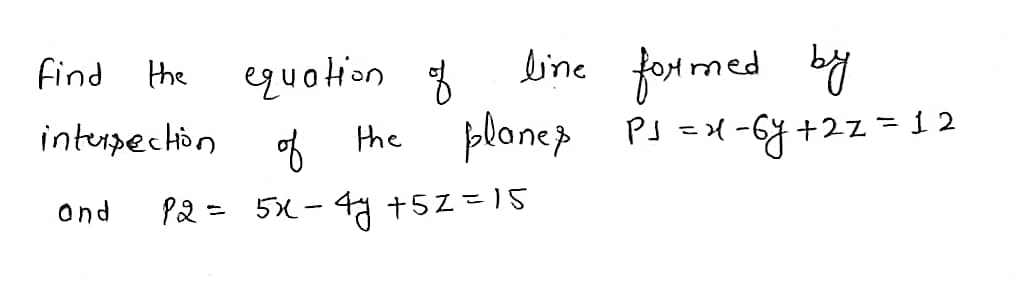 find the equation of line formed by
intersection of the planes P1 = x - 6y + 2z = 12
and P2 = 5x - 4y + 5z = 15